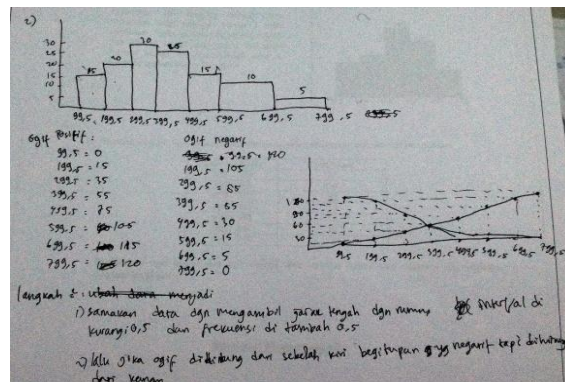 2)
30
25
20
15
10
5
15 20 30 25 15 10 5
99,5 199,5 299,5 399,5 499,5 599,5 699,5 799,5
Ogif Positif :
99,5 = 0
199,5 = 15
299,5 = 35
399,5 = 55
499,5 = 75
599,5 = 105
699,5 = 115
799,5 = 120
Ogif negatif
99,5 = 120
199,5 = 105
299,5 = 85
399,5 = 65
499,5 = 30
599,5 = 15
699,5 = 5
799,5 = 0
120
90
60
30
99,5 199,5 299,5 399,5 499,5 599,5 699,5 799,5
langkah 2 : ubah data menjadi
1) samakan data dgn mengambil garis tengah dgn rumus interval di
kurangi 0,5 dan frekuensi di tambah 0,5
2) lalu jika ogif dihitung dari sebelah kiri begitupun yg negatif tapi dihitung
dari kanan